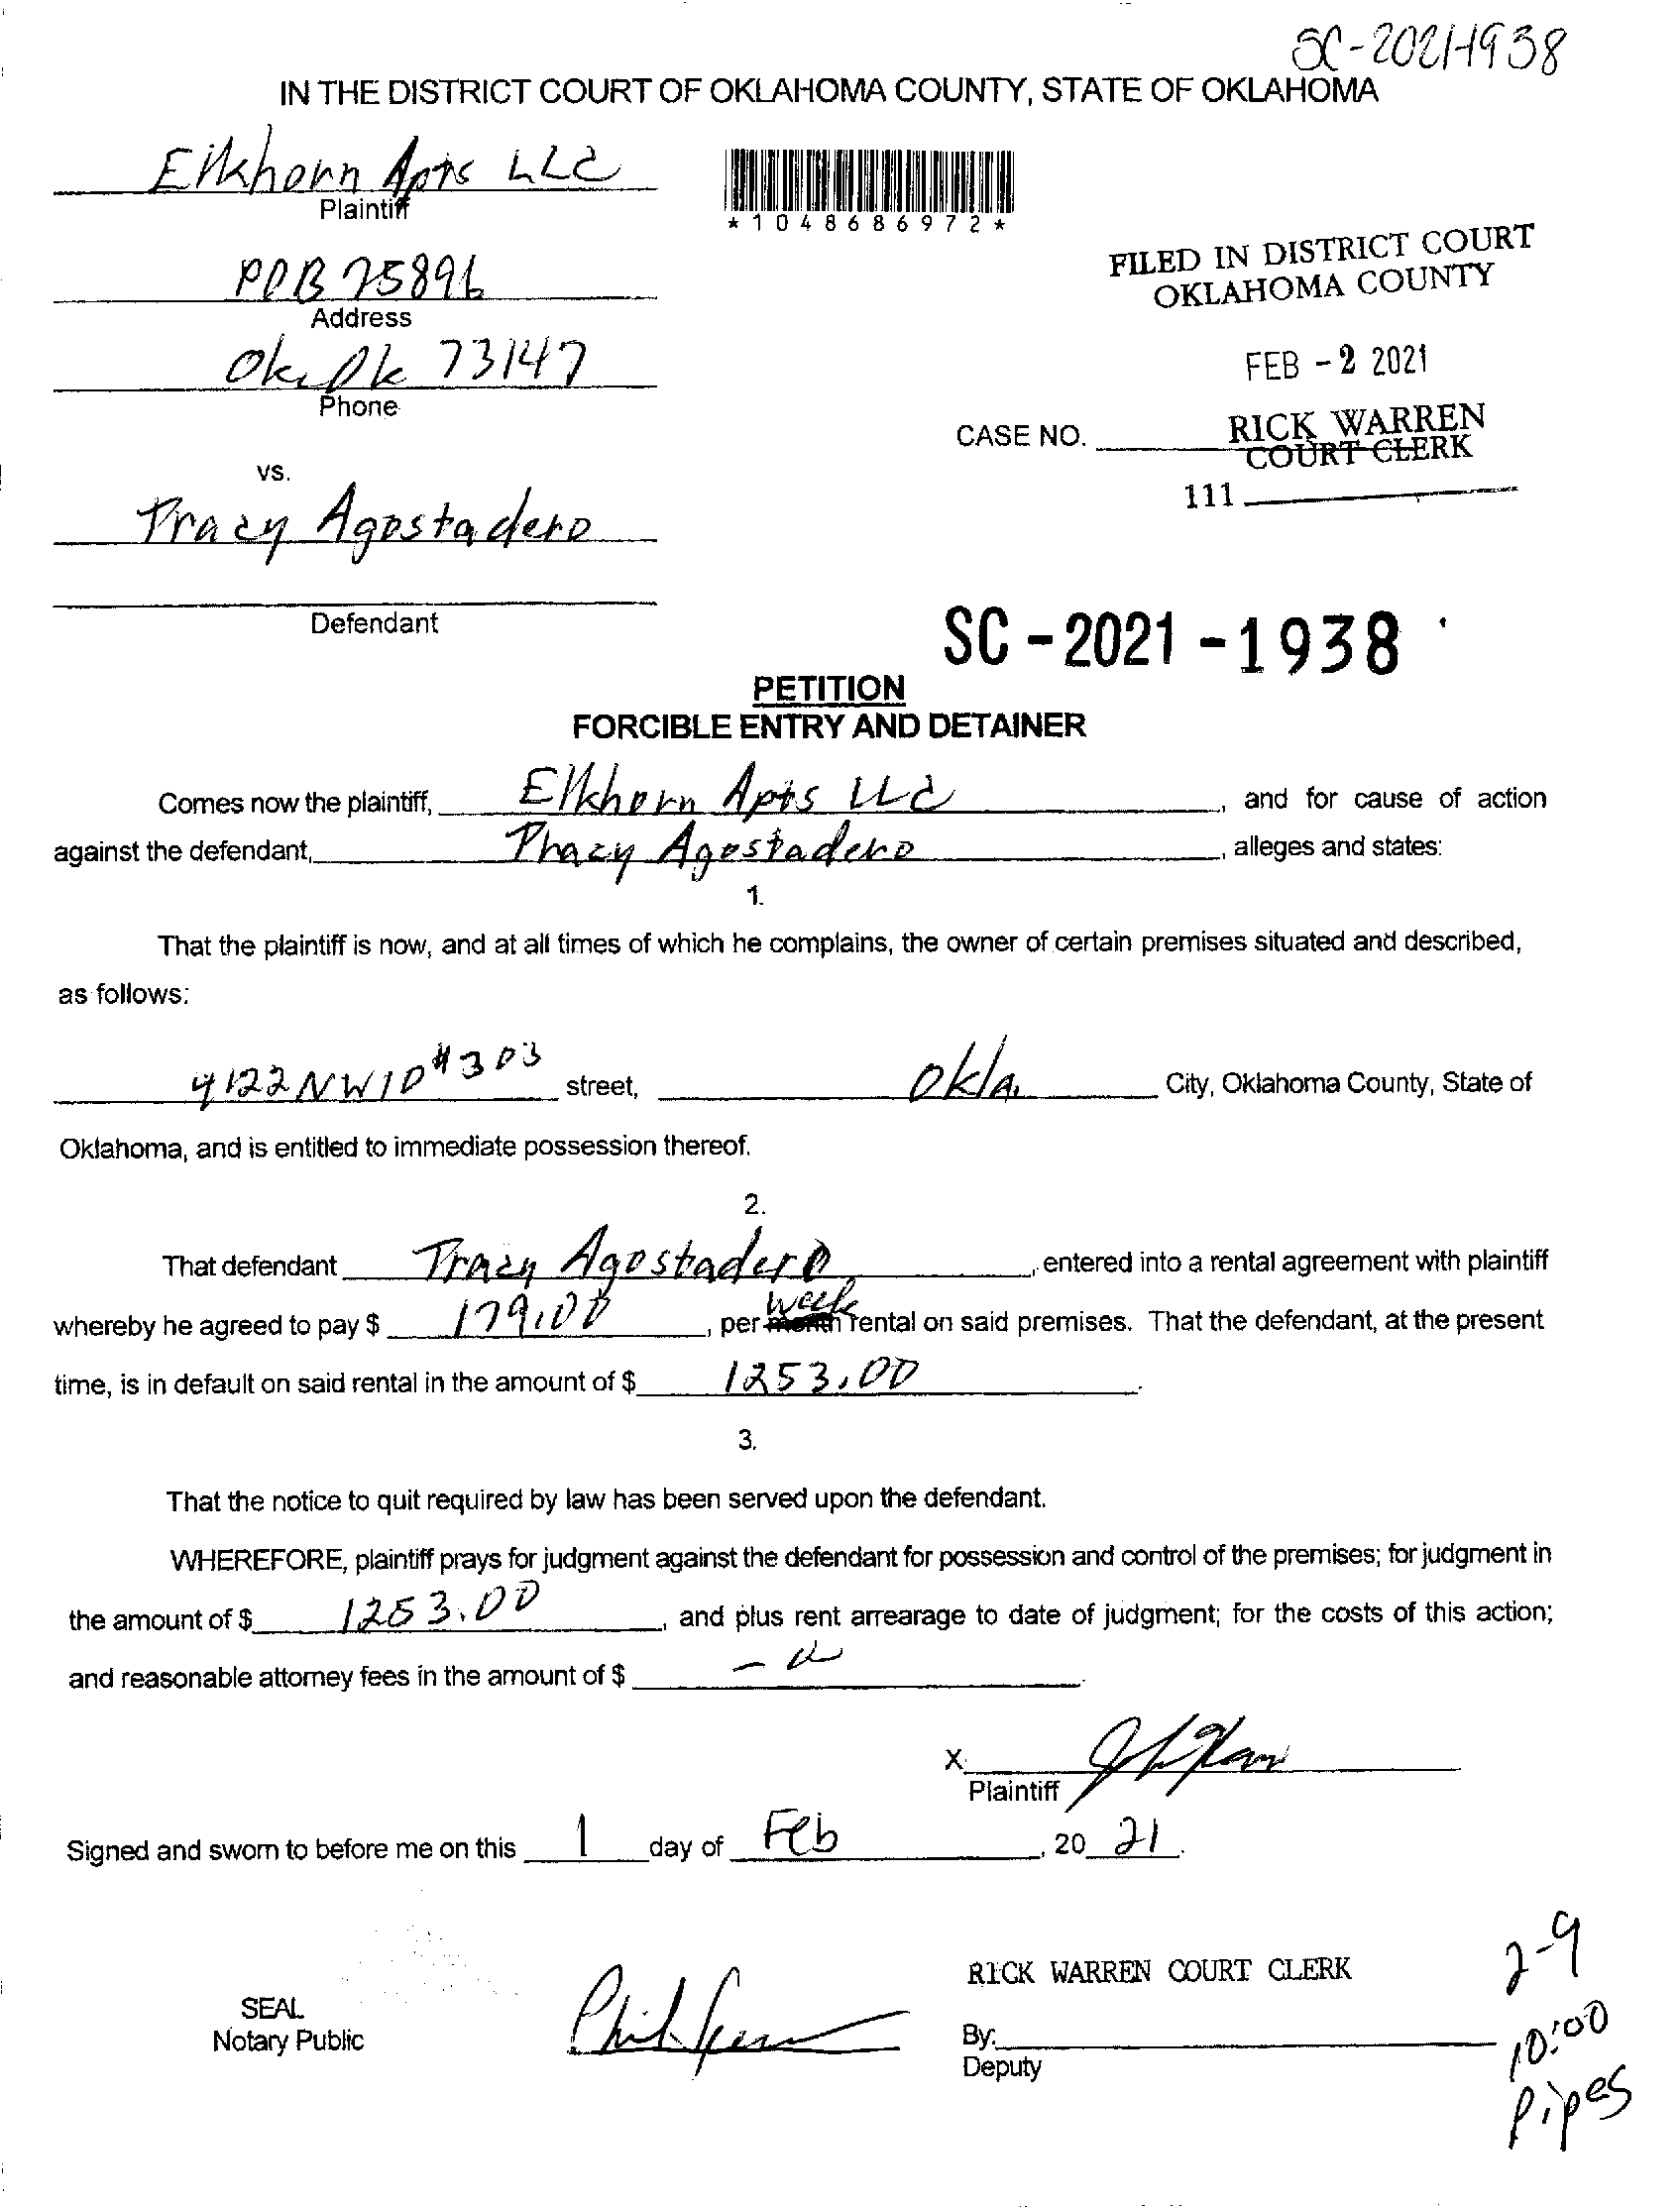 SC-2021-1938
IN THE DISTRICT COURT OF OKLAHOMA COUNTY, STATE OF OKLAHOMA
Elkhorn Apts LLC
Plaintiff
*1048686972*
POB 75896
Address
FILED IN DISTRICT COURT
OKLAHOMA COUNTY
Ok. Ok 73147
Phone
FEB -2 2021
CASE NO.
RICK WARREN
COURT CLERK
111
vs.
Tracy Agostadero
Defendant
SC-2021-1938
PETITION
FORCIBLE ENTRY AND DETAINER
Comes now the plaintiff, Elkhorn Apts LLC, and for cause of action
against the defendant, Tracy Agostadero, alleges and states:
1.
That the plaintiff is now, and at all times of which he complains, the owner of certain premises situated and described,
as follows:
4122 NW10 #303 street, Okla. City, Oklahoma County, State of
Oklahoma, and is entitled to immediate possession thereof.
2.
That defendant Tracy Agostadero, entered into a rental agreement with plaintiff
whereby he agreed to pay $ 179.00, per month week rental on said premises. That the defendant, at the present
time, is in default on said rental in the amount of $ 1253.00.
3.
That the notice to quit required by law has been served upon the defendant.
WHEREFORE, plaintiff prays for judgment against the defendant for possession and control of the premises; for judgment in
the amount of $ 1253.00, and plus rent arrearage to date of judgment; for the costs of this action;
and reasonable attorney fees in the amount of $
X
Plaintiff
Signed and sworn to before me on this 1 day of Feb, 20 21.
2-9
RICK WARREN COURT CLERK
SEAL
Notary Public
By:
Deputy
10:00
Pipes